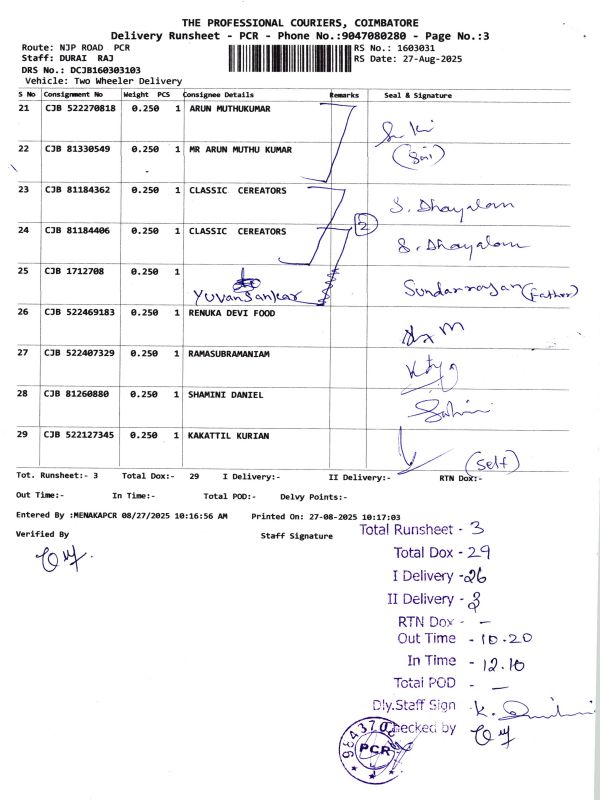 THE PROFESSIONAL COURIERS, COIMBATORE
Delivery Runsheet - PCR - Phone No.:9047080280 - Page No.:3
Route: NJP ROAD PCR RS No.: 1603031
Staff: DURAI RAJ RS Date: 27-Aug-2025
DRS No.: DCJB160303103
Vehicle: Two Wheeler Delivery
S No Consignment No Weight PCS Consignee Details Remarks Seal & Signature
21 CJB 522270818 0.250 1 ARUN MUTHUKUMAR
22 CJB 81330549 0.250 1 MR ARUN MUTHU KUMAR
23 CJB 81184362 0.250 1 CLASSIC CEREATORS S. Dhayalan
24 CJB 81184406 0.250 1 CLASSIC CEREATORS 2 S. Dhayalan
25 CJB 1712708 0.250 1 Yuvansankar (Father)
26 CJB 522469183 0.250 1 RENUKA DEVI FOOD
27 CJB 522407329 0.250 1 RAMASUBRAMANIAM
28 CJB 81260880 0.250 1 SHAMINI DANIEL
29 CJB 522127345 0.250 1 KAKATTIL KURIAN (Self)
Tot. Runsheet:- 3 Total Dox:- 29 I Delivery:- II Delivery:- RTN Dox:-
Out Time:- In Time:- Total POD:- Delvy Points:-
Entered By :MENAKAPCR 08/27/2025 10:16:56 AM Printed On: 27-08-2025 10:17:03
Verified By Staff Signature
Total Runsheet - 3
Total Dox - 29
I Delivery - 26
II Delivery - 3
RTN Dox - -
Out Time - 10.20
In Time - 12.10
Total POD - -
Dly.Staff Sign
Checked by
PCR